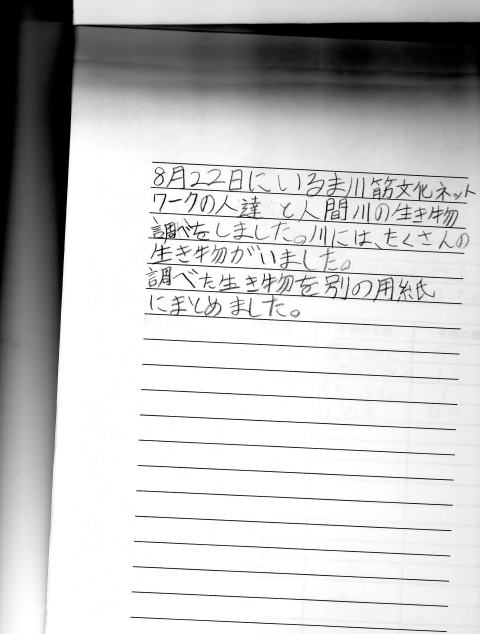 8月22日にいるま川筋文化ネット
ワークの人達と人間川の生き物
調べをしました。川には、たくさんの
生き物がいました。
調べた生き物を別の用紙
にまとめました。